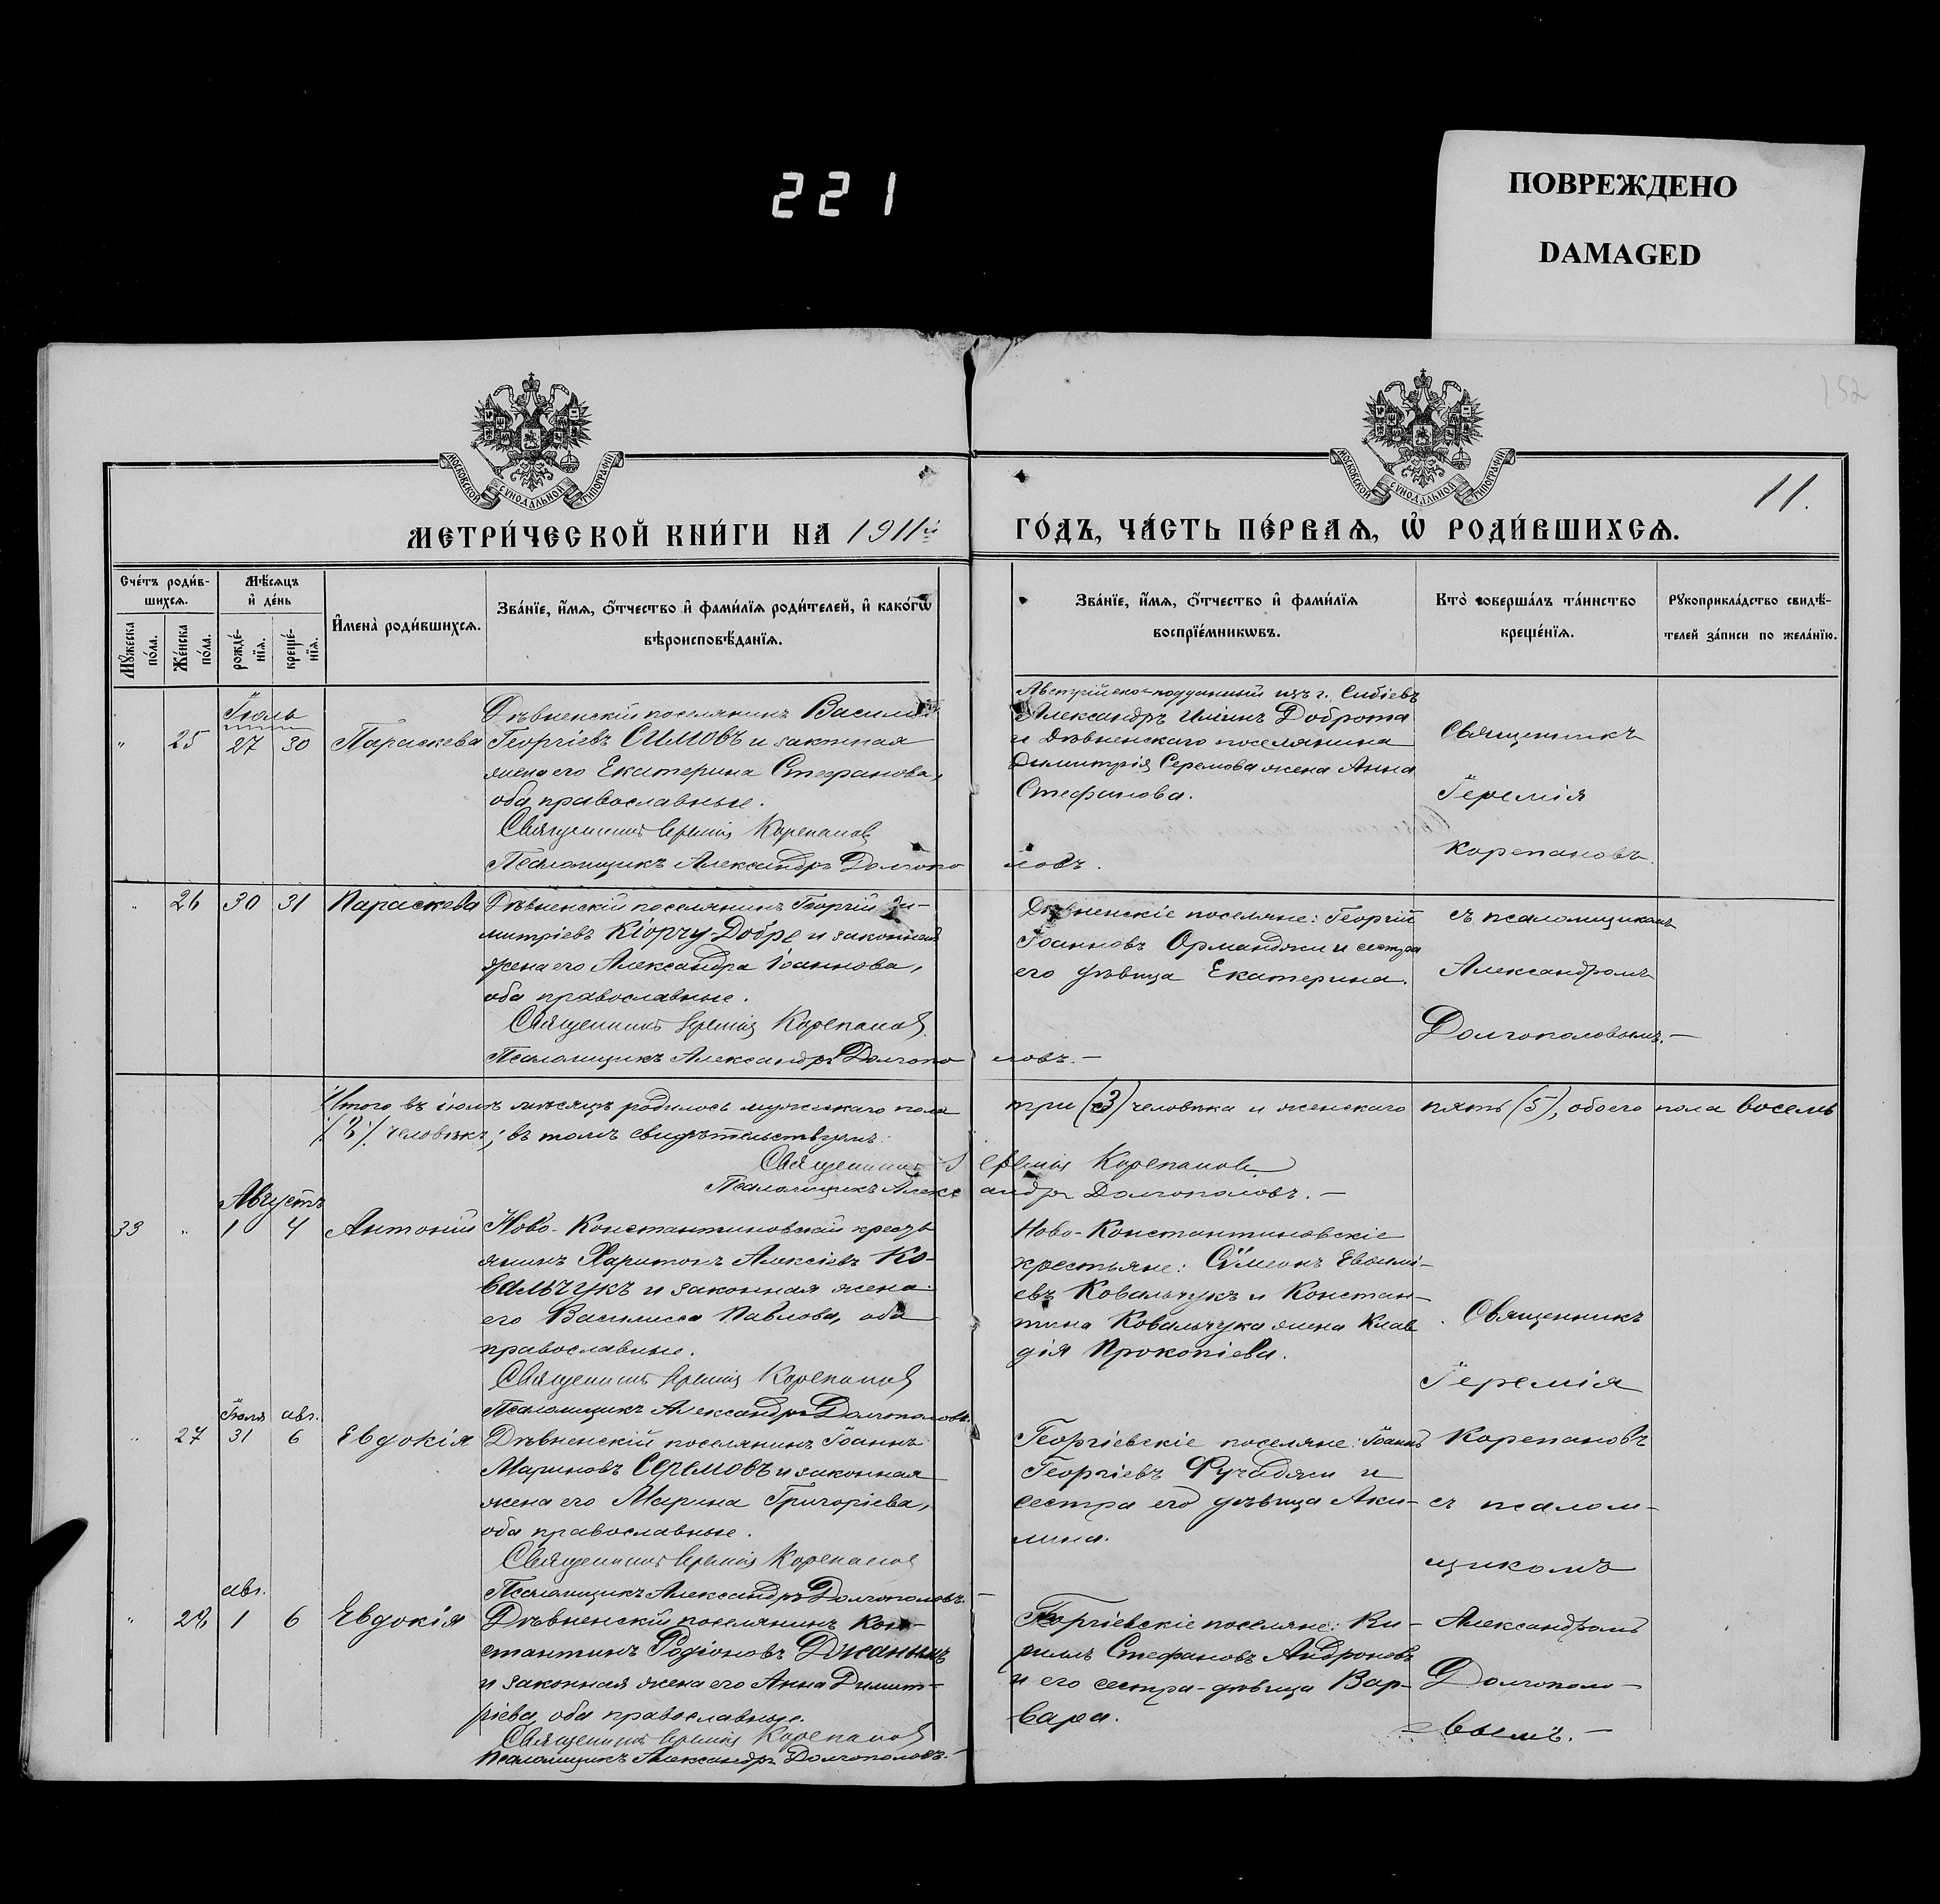 221
ПОВРЕЖДЕНО
DAMAGED
152
МОСКОВСКОЙ СѴНОДАЛЬНОЙ ТИПОГРАФІИ
МОСКОВСКОЙ СѴНОДАЛЬНОЙ ТИПОГРАФІИ
11.
МЕТРИ́ЧЕСКОЙ КНИ́ГИ НА 1911й
ГО́ДЪ, ЧА́СТЬ ПЕ́РВАѦ, Ѽ РОДИ́ВШИХСѦ.
Сче́тъ роди́в-
шихсѧ.
Мꙋ́жеска по́ла.
Же́нска по́ла.
Мѣ́сяцъ
и҆ де́нь
рожде́-нїѧ.
креще́-нїѧ.
И҆мена̀ роди́вшихсѧ.
Зва́нїе, и҆́мѧ, ѻ҆́тчество и҆ фами́лїѧ роди́телей, и҆ како́гѡ
вѣроисповѣ́данїѧ.
Зва́нїе, и҆́мѧ, ѻ҆́тчество и҆ фами́лїѧ
воспрїе́мникѡвъ.
Кто̀ соверша́лъ та́инство
креще́нїѧ.
Рꙋкоприкла́дство свидѣ́-
телей за́писи по жела́нїю.
Іюль
" 25 27 30 Параскева
Дѣвненскій поселянинъ Василій
Георгіевъ Симовъ и законная
жена его Екатерина Стефанова,
оба православные.
Священникъ Іеремія Корепановъ
Псаломщикъ Александръ Долгополовъ.
Австрійско-подданный изъ г. Сибіевъ
Александръ Иліинъ Доброта
и Дѣвненскаго поселянина
Димитрія Серемова жена Анна
Стефанова.
Священникъ
Іеремія
Корепановъ
" 26 30 31 Параскева
Дѣвненскій поселянинъ Георгій Ди-
митріевъ Кіорчу-Добре и законная
жена его Александра Іоаннова,
оба православные.
Священникъ Іеремія Корепановъ
Псаломщикъ Александръ Долгополовъ.—
Дѣвненскіе поселяне: Георгій
Іоанновъ Орманджи и сестра
его дѣвица Екатерина.
съ псаломщикомъ
Александромъ
Долгополовымъ.—
Итого въ іюлѣ мѣсяцѣ родилось мужескаго пола три (3) человѣка и женскаго пять (5), обоего пола восемь
/8/ человѣкъ; въ томъ свидѣтельствуемъ:
Священникъ Іеремія Корепановъ
Псаломщикъ Александръ Долгополовъ.—
Августъ
33 " 1 4 Антоній
Ново-Константиновскій кресть-
янинъ Харитонъ Алексіевъ Ко-
вальчукъ и законная жена
его Василисса Павлова, оба
православные.
Священникъ Іеремія Корепановъ
Псаломщикъ Александръ Долгополовъ.
Ново-Константиновскіе
крестьяне: Сѵмеонъ Евѳимі-
евъ Ковальчукъ и Констан-
тина Ковальчука жена Клав
дія Прокопіева.
Священникъ
Іеремія
Іюля авг.
" 27 31 6 Евдокія
Дѣвненскій поселянинъ Іоаннъ
Мариновъ Серемовъ и законная
жена его Марина Григоріева,
оба православные.
Священникъ Іеремія Корепановъ
Псаломщикъ Александръ Долгополовъ.—
Георгіевскіе поселяне: Іоаннъ
Георгіевъ Фучаджи и
сестра его дѣвица Аки-
лина.
Корепановъ
съ псалом-
щикомъ
авг.
" 28 1 6 Евдокія
Дѣвненскій поселянинъ Кон-
стантинъ Родіоновъ
и законная жена его Анна Димит-
ріева, оба православные.
Священникъ Іеремія Корепановъ
Псаломщикъ Александръ Долгополовъ.—
Георгіевскіе поселяне: Ки-
риллъ Стефановъ Андроновъ
и его сестра-дѣвица Вар-
вара.
Александромъ
Долгополо-
вымъ.—